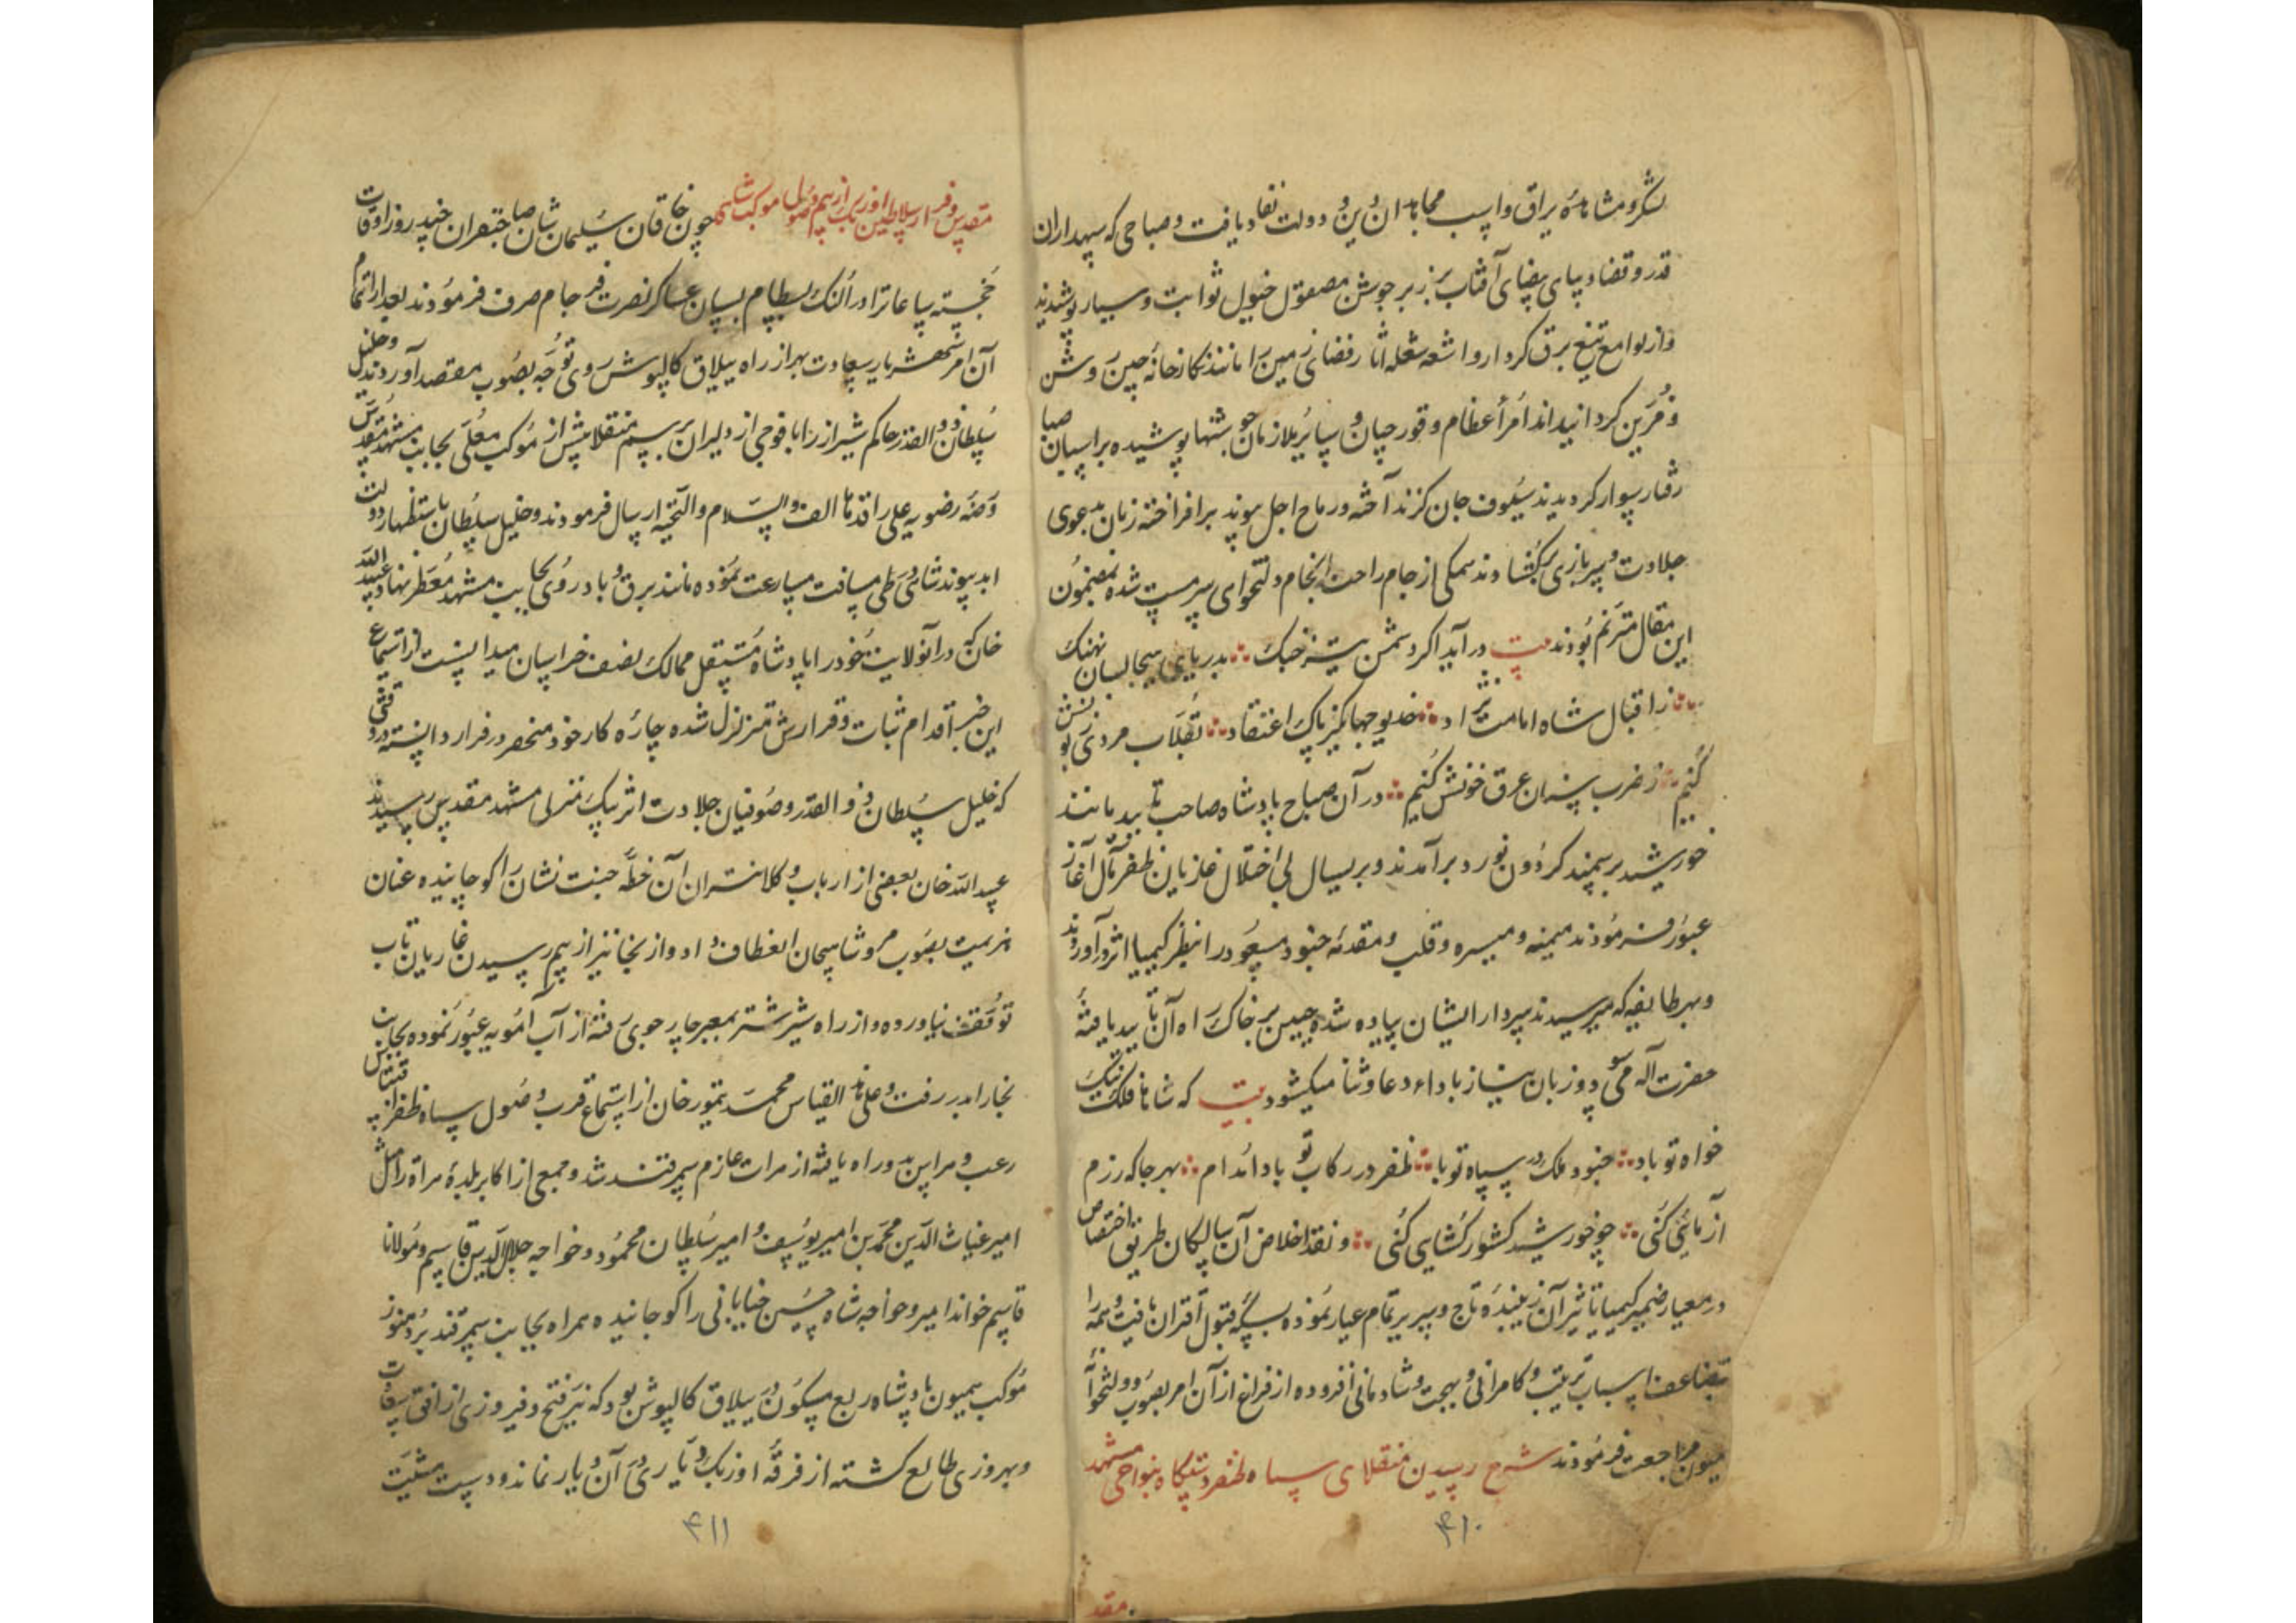 لشکر و مشاهدهٔ یراق و اسب مجاهدان دین و دولت نفاد یافت و صباحی که سپهداران
قدر و قضا دیبای بیضای آفتاب بر زبر جوشن مصقول خیول ثوابت و سیار پوشیدند
و از لوامع تیغ برق کردار و اشعه شعله آثار فضای زمین را مانند نکارخانهٔ چین روشن
و مزین کردانیدند امرأ عظام و قورچیان و سایر ملازمان جوشنها پوشیده بر اسپان صبا
رفتار سوار کردیدند سیوف جان کزند آخته و رماح اجل پیوند برافراخته زبان بدعوی
جلادت و سربازی برکشادند همکی از جام راحت انجام دولتخواهی سرمست شده بمضمون
این مقال مترنم بودند بیت در آید اکر دشمن تیز جنک بدریای هیجا بسان نهنک
ز اقبال شاه امامت نژاد خدیو جهانکیر پاک اعتقاد بقلاب مردی زبونش
کنیم ز ضرب سنان غرق خونش کنیم در آن صباح پادشاه صاحب تایید مانند
خورشید بر سمند کردون نورد برآمدند و بر یسال بی اختلال غازیان ظفر مآل آغاز
عبور فرمودند میمنه و میسره و قلب و مقدمه جنود مسعود را بنظر کیمیا اثر درآوردند
و بهر طایفه که میرسیدند سردار ایشان پیاده شده جبین بر خاک راه آن تایید یافتهٔ
حضرت آله می سود و زبان نیاز باداء دعا و ثنا میکشود بیت که شاها فلک نیک
خواه تو باد جنود ملک در سپاه تو باد ظفر در رکاب تو باد ا مدام بهر جا که رزم
آزمائی کنی چو خورشید کشور کشایی کنی و نقد اخلاص آن سالکان طریق اختصاص
در معیار ضمیر کیمیا تاثیر آن زیبندهٔ تاج و سریر تمام عیار نموده بسکه قبول اقتران یافت و همه را
تضاعف اسباب تربیت و کامرانی و بهجت و شادمانی افزوده از فراغ از آن امر بصوب دولتخوانهٔ
میمون مراجعت فرمودند شرح رسیدن منقلای سپاه ظفر دستکاه بنواحی مشهد
۴۱۰
مقد
مقدس و فرار سلاطین اوزبک از بیم وصول موکب شاهی چون خاقان سلیمان شان صاحبقران چند روز اوقات
خجسته ساعات را در النک بسطام بسان عساکر نصرت فرجام صرف فرمودند بعد از اتمام
آن امر شهریار سعادت بهر از راه ییلاق کالپوش روی توجه بصوب مقصد آوردند و خلیل
سلطان ذو القدر حاکم شیراز را با فوجی از دلیران برسم منقلا پیش از موکب معلی بجانب مشهد مقدس
روضه رضویه علی راقدها الف السلام والتحیه ارسال فرمودند و خلیل سلطان باستظهار دولت
ابد پیوند شاهی در طی مسافت مسارعت نموده مانند برق و باد روی بجانب مشهد معطر نهاد و عبید الله
خان که در آنولایت خود را پادشاه مستقل ممالک نصف خراسان میدانست از استماع
این خبر اقدام ثبات و قرارش متزلزل شده چاره کار خود منحصر در فرار دانسته در وقتی
که خلیل سلطان ذو القدر و صوفیان جلادت اثر بیک منزلی مشهد مقدس رسیدند
عبید الله خان بعضی از ارباب و کلانتران آن خطه جنت نشان را کوچانیده عنان
هزیمت بصوب مرو شاهیجان انعطاف داد و از آنجا نیز از بیم رسیدن غازیان تاب
توقف نیاورده و از راه شیر شتر بمعبر چارجوی رفته از آب امویه عبور نموده بجانب
بخارا بدر رفت و علی هذا القیاس محمد تیمور خان از استماع قرب وصول سپاه ظفر اقتباس
رعب و هراس بدو راه یافته از هرات عازم سمرقند شد و جمعی از اکابر بلدهٔ هراة را مثل
امیر غیاث الدین محمد بن امیر یوسف و امیر سلطان محمود و خواجه جلال الدین قاسم و مولانا
قاسم خواند امیر و خواجه شاه حسین خیابانی را کوچانیده همراه بجانب سمرقند برد هنوز
موکب همیون پادشاه ربع مسکون در ییلاق کالپوش بود که نیر فتح و فیروزی از افق سعادت
و بهروزی طالع کشته از فرقه اوزبک دیاری در آن دیار نماند و دست مشیت
۴۱۱